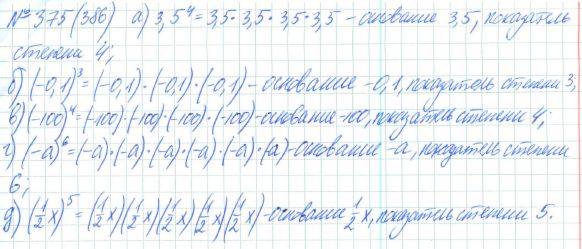 № 375 (386) а) 3,5⁴ = 3,5 · 3,5 · 3,5 · 3,5 – основание 3,5, показатель
степени 4;
б) (-0,1)³ = (-0,1) · (-0,1) · (-0,1) – основание -0,1, показатель степени 3;
в) (-100)⁴ = (-100) · (-100) · (-100) · (-100) – основание -100, показатель степени 4;
г) (-a)⁶ = (-a) · (-a) · (-a) · (-a) · (-a) · (a) – основание -a, показатель степени
6;
д) (1/2 x)⁵ = (1/2 x)(1/2 x)(1/2 x)(1/2 x)(1/2 x) – основание 1/2 x, показатель степени 5.